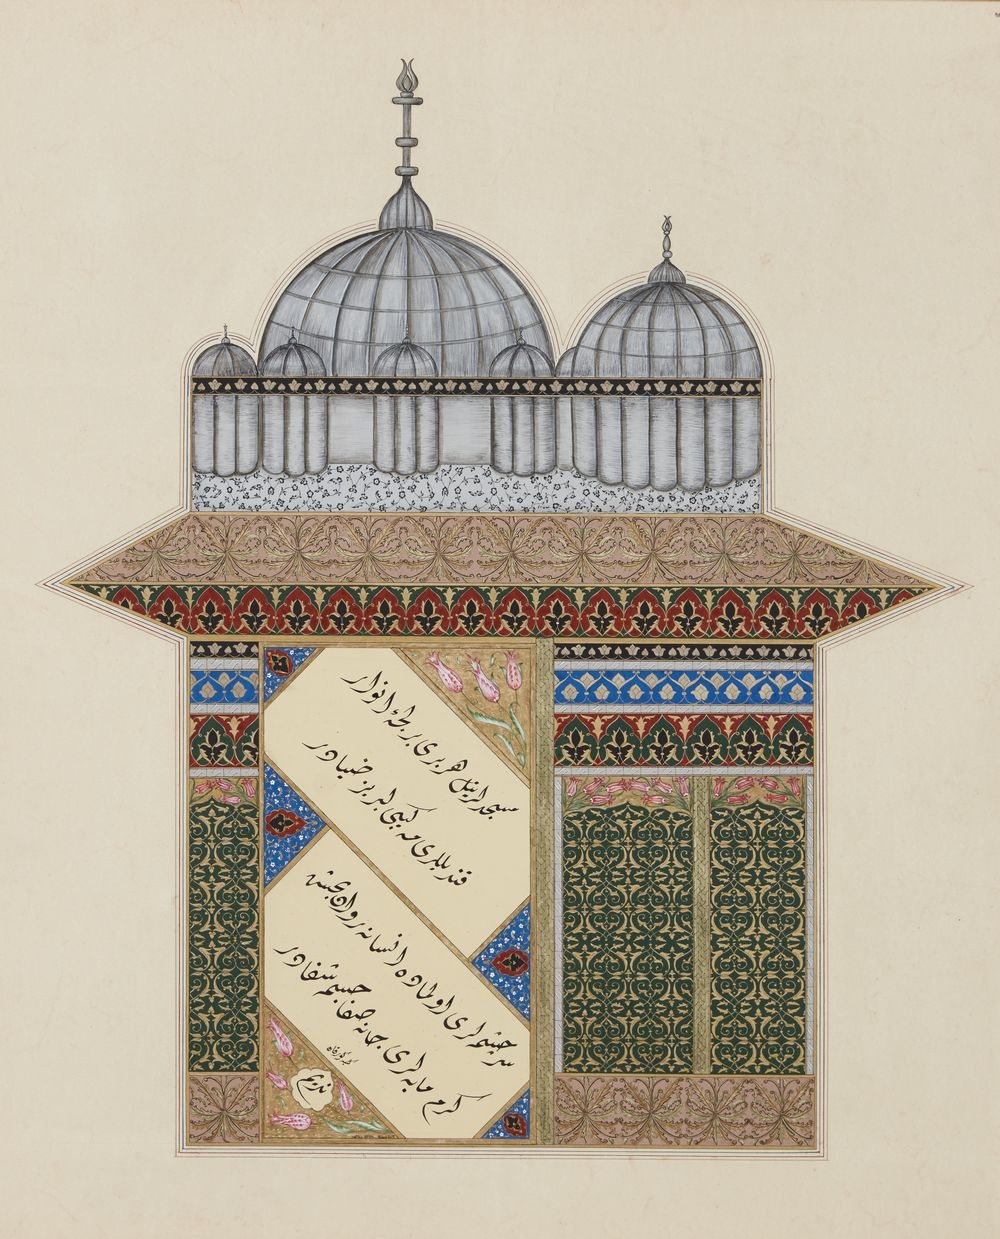 مسجدلرینك هر بری بر لجهٔ انوار
قندیللری مه کبی لبریز ضیادر
سر چشمه لری اولماده انسانه روان بخش
کرم مابه لری جانه صفا جسمه شفادر
ندیم